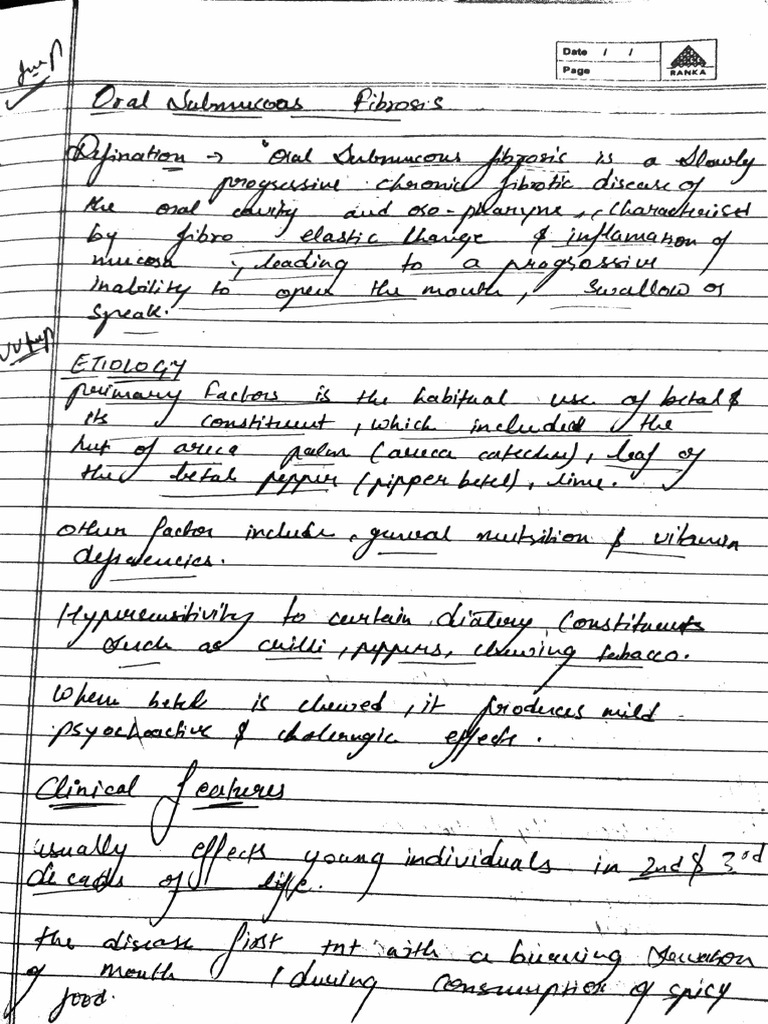 Date / /
Page
RANKA
Imp
Oral Submucous Fibrosis
Defination → "Oral Submucous fibrosis is a slowly
progressive chronic fibrotic disease of
the oral cavity and oro-pharynx, characterised
by fibro elastic change & inflamation of
mucosa, leading to a progressive
inability to open the mouth, swallow or
speak.
VV Imp
ETIOLOGY
primary factors is the habitual use of betal &
its constituent, which included the
nut of areca palm (areca catechu), leaf of
the betal pepper (pipper betel), lime.
other factor include, general nutrition & vitamin
deficiencies.
Hypersensitivity to certain dietary constituents
such as chilli, peppers, chewing tobacco.
When betel is chewed, it produces mild
psychoactive & cholenergic effects.
Clinical features
usually effects young individuals in 2nd & 3rd
decads of life.
the disease first with a burning sensation
of mouth (during consumption of spicy
food.